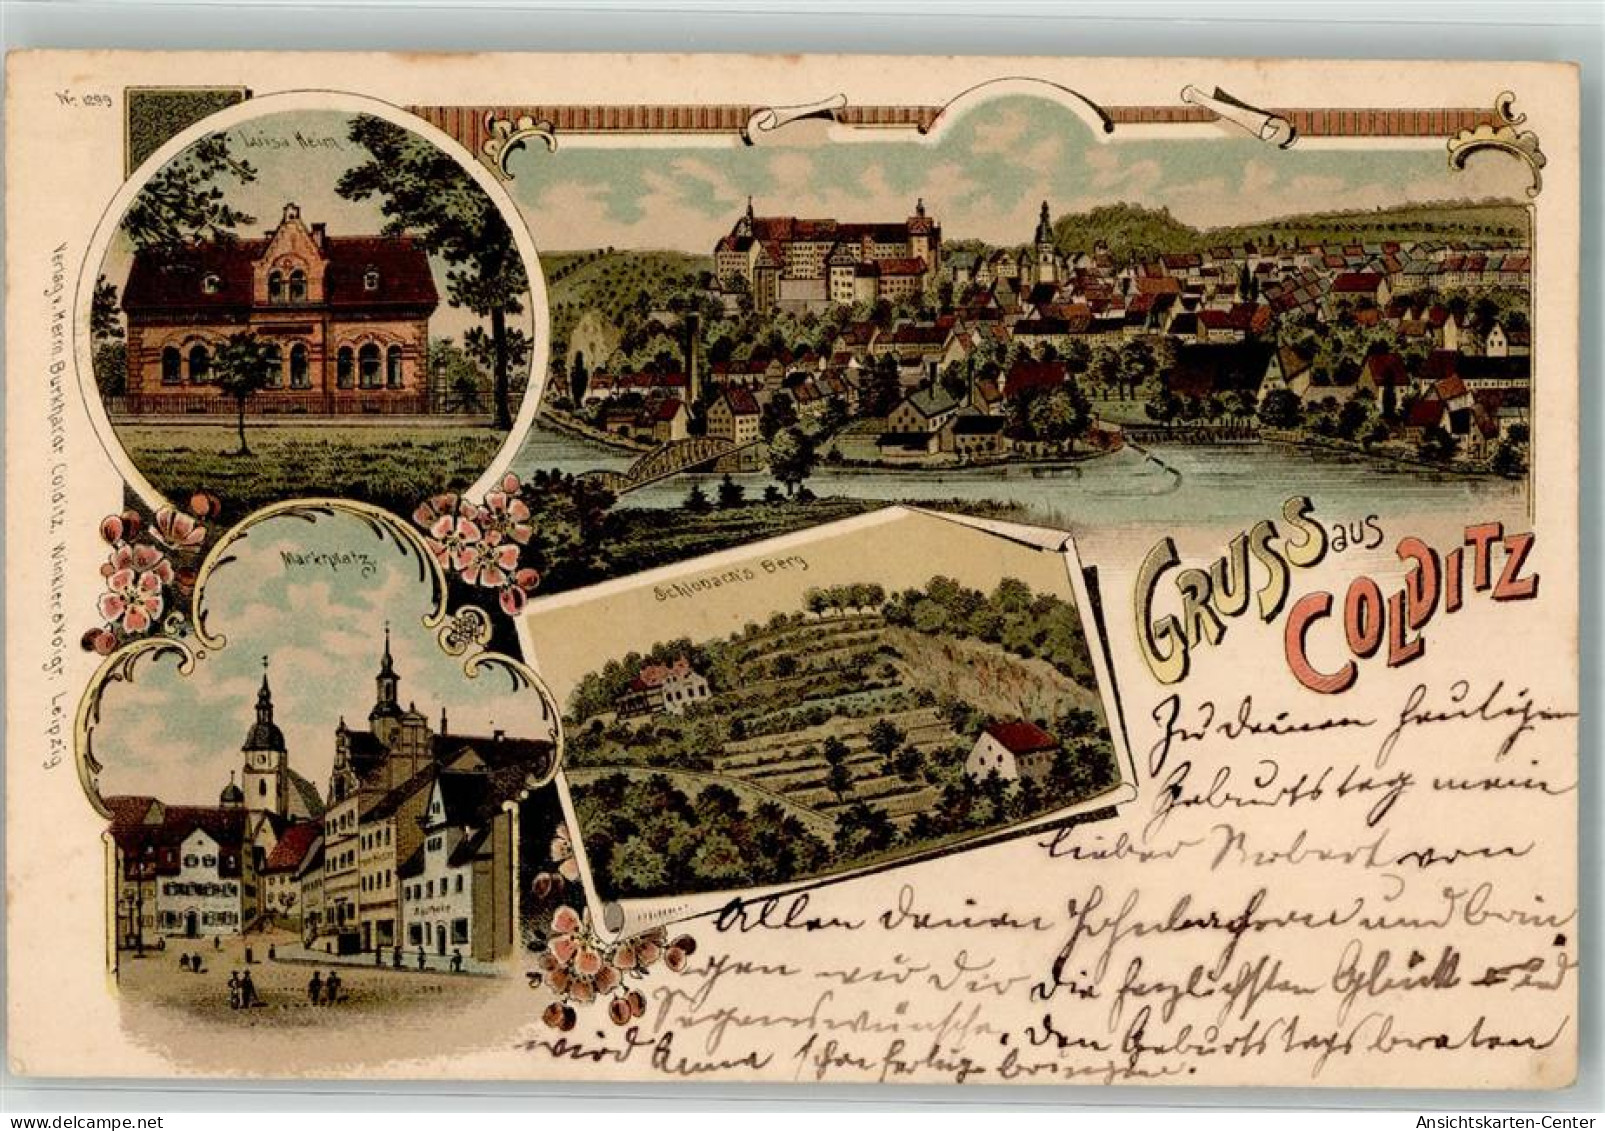 No. 1299
Luisa Heim
Verlag v. Herm. Burkhardt Colditz, Winkler & Voigt, Leipzig
Marktplatz
Schlobach's Berg
Apotheke
GRUSS aus
COLDITZ
Zu Deinem heutigen
Geburtstag mein
lieber Robert von
Allen Deinen und brin
gen wir Dir die herzlichsten Glück und
Segenswünsche, den Geburtstagsbraten
wird Anna schon fertig bringen.
Ansichtskarten-Center